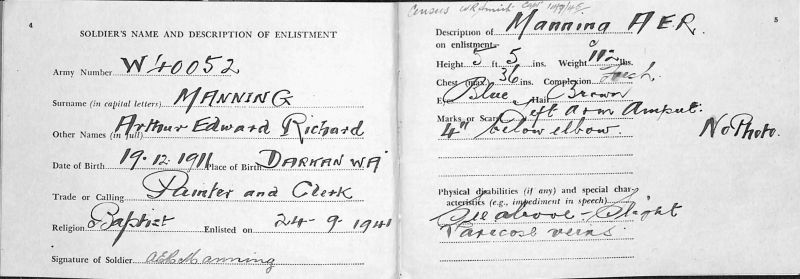 4
SOLDIER'S NAME AND DESCRIPTION OF ENLISTMENT
Army Number W40052
Surname (in capital letters) MANNING
Other Names (in full) Arthur Edward Richard
Date of Birth 19.12.1911 Place of Birth DARKAN WA
Trade or Calling Painter and Clerk
Religion Baptist Enlisted on 24-9-1941
Signature of Soldier AER Manning
Census
5
Description of Manning AER.
on enlistment
Height 5 ft. 5 ins. Weight 112 lbs.
Chest (max.) 36 ins. Complexion Fresh.
Eyes Blue Hair Brown
Marks or Scars Left arm Amput:
4" below elbow.
No Photo.
Physical disabilities (if any) and special char-
acteristics (e.g., impediment in speech)
See above - Slight
Varicose veins